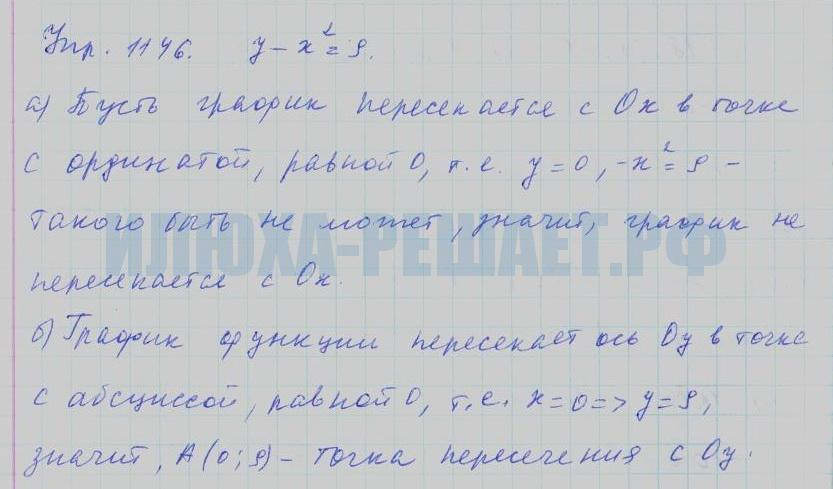 Упр. 1146. y - x² = 9.
а) Пусть график пересекается с Ox в точке
с ординатой, равной 0, т.е. y = 0, -x² = 9 -
такого быть не может, значит, график не
ИЛЮХА-РЕШАЕТ.РФ
пересекается с Ox.
б) График функции пересекает ось Oy в точке
с абсциссой, равной 0, т.е. x = 0 => y = 9,
значит, A (0; 9) - точка пересечения с Oy.